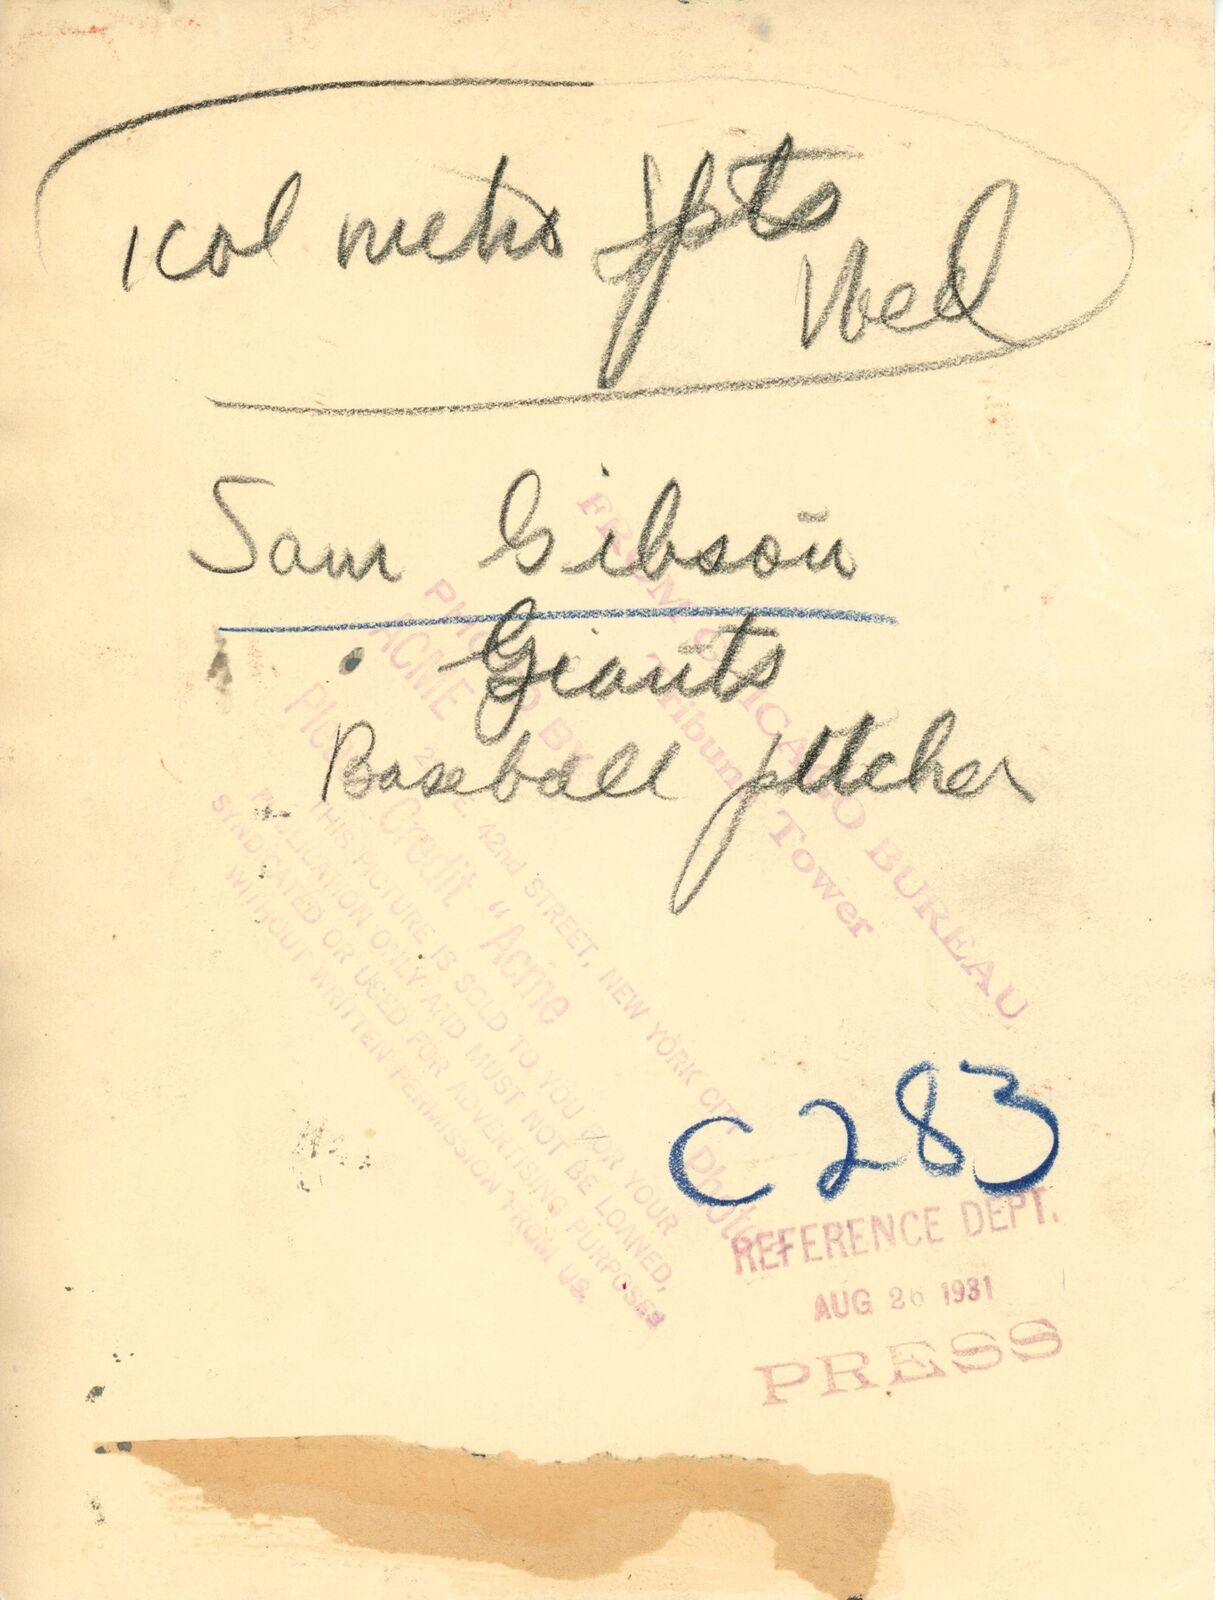 1 col metro spts
Wed
Sam Gibson
Giants
Baseball pitcher
FROM CHICAGO BUREAU
Tribune Tower
PHOTO BY
ACME
E. 42nd STREET, NEW YORK CITY
Credit "Acme Photo"
THIS PICTURE IS SOLD TO YOU FOR YOUR
PUBLICATION ONLY AND MUST NOT BE LOANED,
SYNDICATED OR USED FOR ADVERTISING PURPOSES
WITHOUT WRITTEN PERMISSION FROM US.
C283
REFERENCE DEPT.
AUG 26 1931
PRESS